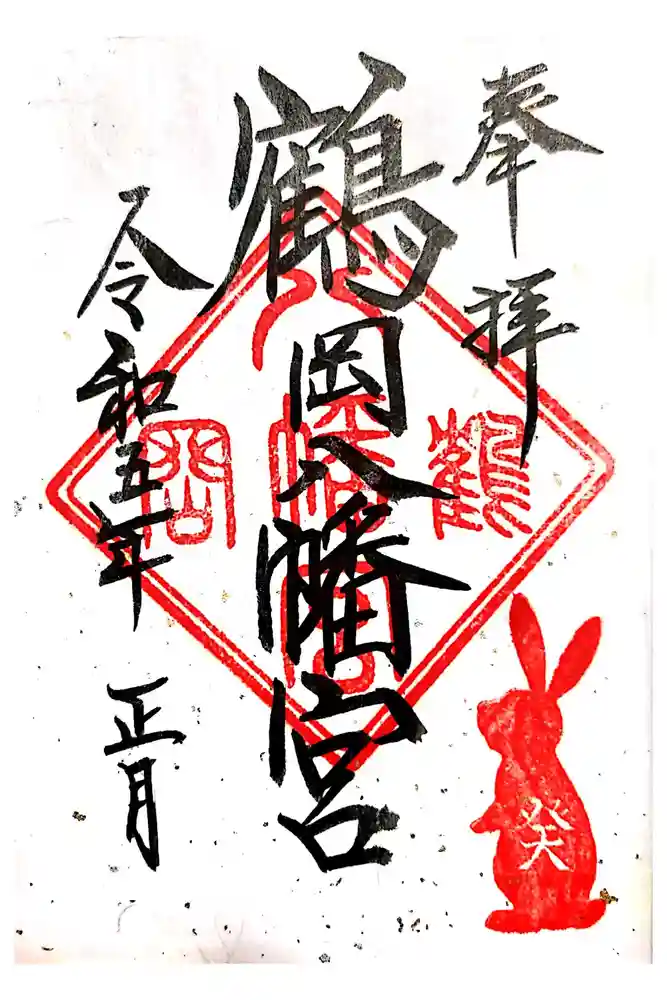 奉拝
鶴岡八幡宮
令和五年 正月
鶴
八幡宮
岡
癸